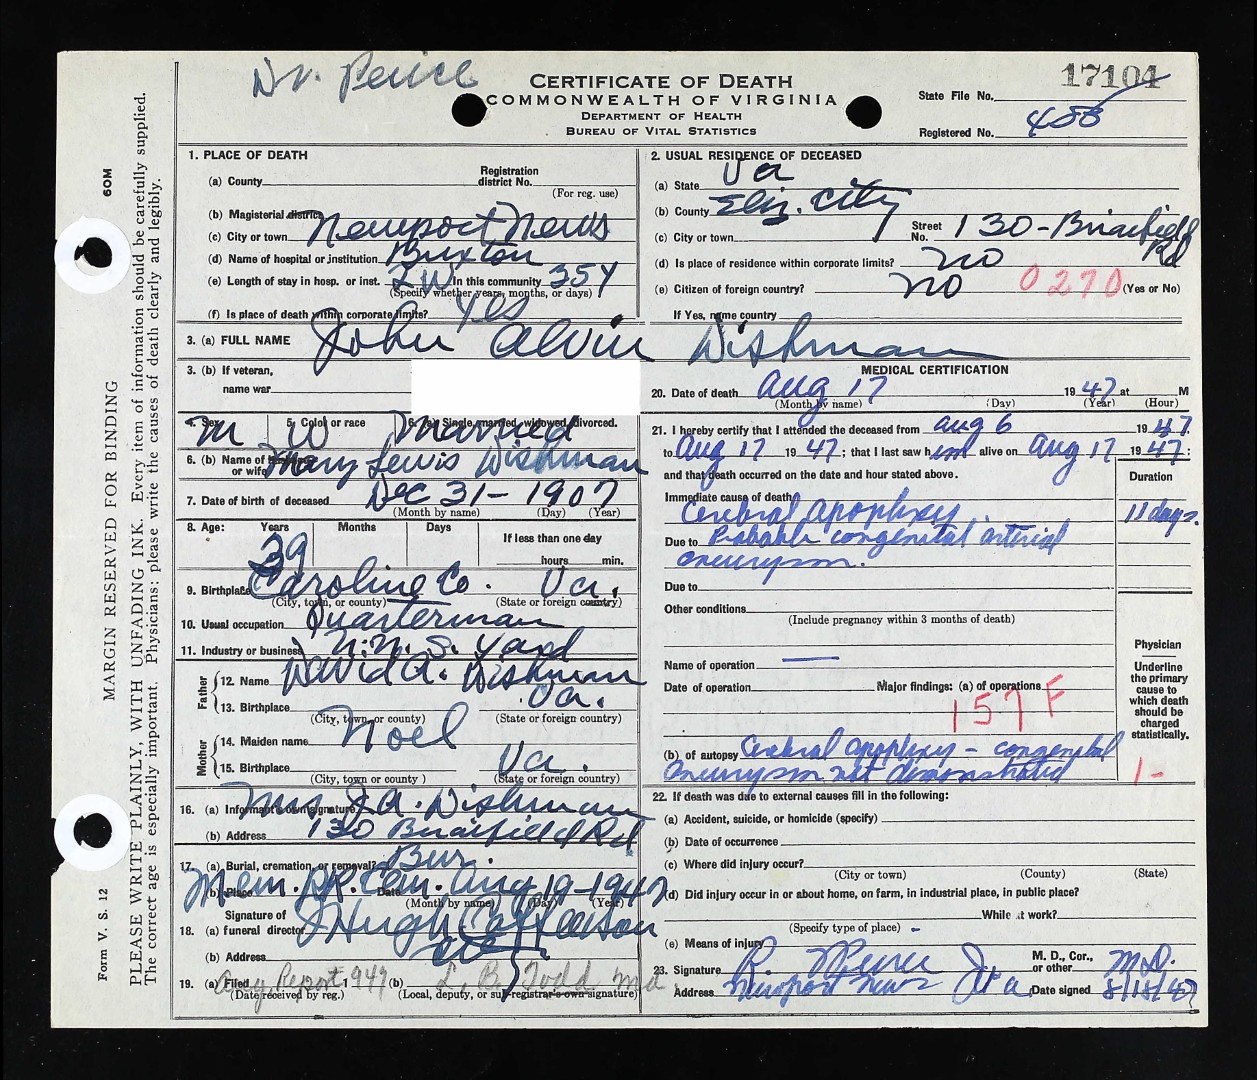 Dr. Peirce
CERTIFICATE OF DEATH
COMMONWEALTH OF VIRGINIA
DEPARTMENT OF HEALTH
BUREAU OF VITAL STATISTICS
17104
State File No.
Registered No. 488
60M
MARGIN RESERVED FOR BINDING
PLEASE WRITE PLAINLY, WITH UNFADING INK. Every item of information should be carefully supplied.
The correct age is especially important. Physicians: please write the causes of death clearly and legibly.
Form V. S. 12
1. PLACE OF DEATH
(a) County Registration district No.
(For reg. use)
(b) Magisterial district
(c) City or town Newport News
(d) Name of hospital or institution Buxton
(e) Length of stay in hosp. or inst. 2W In this community 35Y
(Specify whether years, months, or days)
(f) Is place of death within corporate limits? Yes
2. USUAL RESIDENCE OF DECEASED
(a) State Va
(b) County Eliz. City
(c) City or town Street No. 130-Briarfield Rd
(d) Is place of residence within corporate limits? no
(e) Citizen of foreign country? no 0270 (Yes or No)
If Yes, name country
3. (a) FULL NAME John Alvin Dishman
3. (b) If veteran,
name war
4. Sex M 5. Color or race W 6. (a) Single, married, widowed, divorced. Married
6. (b) Name of husband or wife Mary Lewis Dishman
7. Date of birth of deceased Dec 31-1907
(Month by name) (Day) (Year)
8. Age: Years Months Days If less than one day
39 hours min.
9. Birthplace Caroline Co. Va.
(City, town, or county) (State or foreign country)
10. Usual occupation Quarterman
11. Industry or business N.N. S. Yard
Father 12. Name David A. Dishman
13. Birthplace Va.
(City, town, or county) (State or foreign country)
Mother 14. Maiden name Noel
15. Birthplace Va.
(City, town, or county ) (State or foreign country)
16. (a) Informant's own signature Mrs J.A. Dishman
(b) Address 130 Briarfield Rd
17. (a) Burial, cremation, or removal? Bur.
(b) Place Mem. Pk. Cem. Date Aug 19-1947
(Month by name) (Day) (Year)
Signature of
18. (a) funeral director J Hugh
(b) Address City
19. (a) Filed Aug Report 1947 (b) L. B. Todd Md.
(Date received by reg.) (Local, deputy, or sub-registrar's own signature)
MEDICAL CERTIFICATION
20. Date of death Aug 17 1947 at M
(Month by name) (Day) (Year) (Hour)
21. I hereby certify that I attended the deceased from Aug 6 1947
to Aug 17 1947; that I last saw him alive on Aug 17 1947;
and that death occurred on the date and hour stated above. Duration
Immediate cause of death
Cerebral apoplexy 11 days.
Due to Probable congenital arterial
aneurysm.
Due to
Other conditions
(Include pregnancy within 3 months of death)
Name of operation —
Date of operation Major findings: (a) of operations
157 F
(b) of autopsy Cerebral apoplexy - congenital
aneurysm not demonstrated
Physician
Underline the primary cause to which death should be charged statistically.
1-
22. If death was due to external causes fill in the following:
(a) Accident, suicide, or homicide (specify)
(b) Date of occurrence
(c) Where did injury occur?
(City or town) (County) (State)
(d) Did injury occur in or about home, on farm, in industrial place, in public place?
While at work?
(Specify type of place)
(e) Means of injury
23. Signature R. Peirce M. D., Cor., or other M.D.
Address Newport News Va Date signed 8/18/47